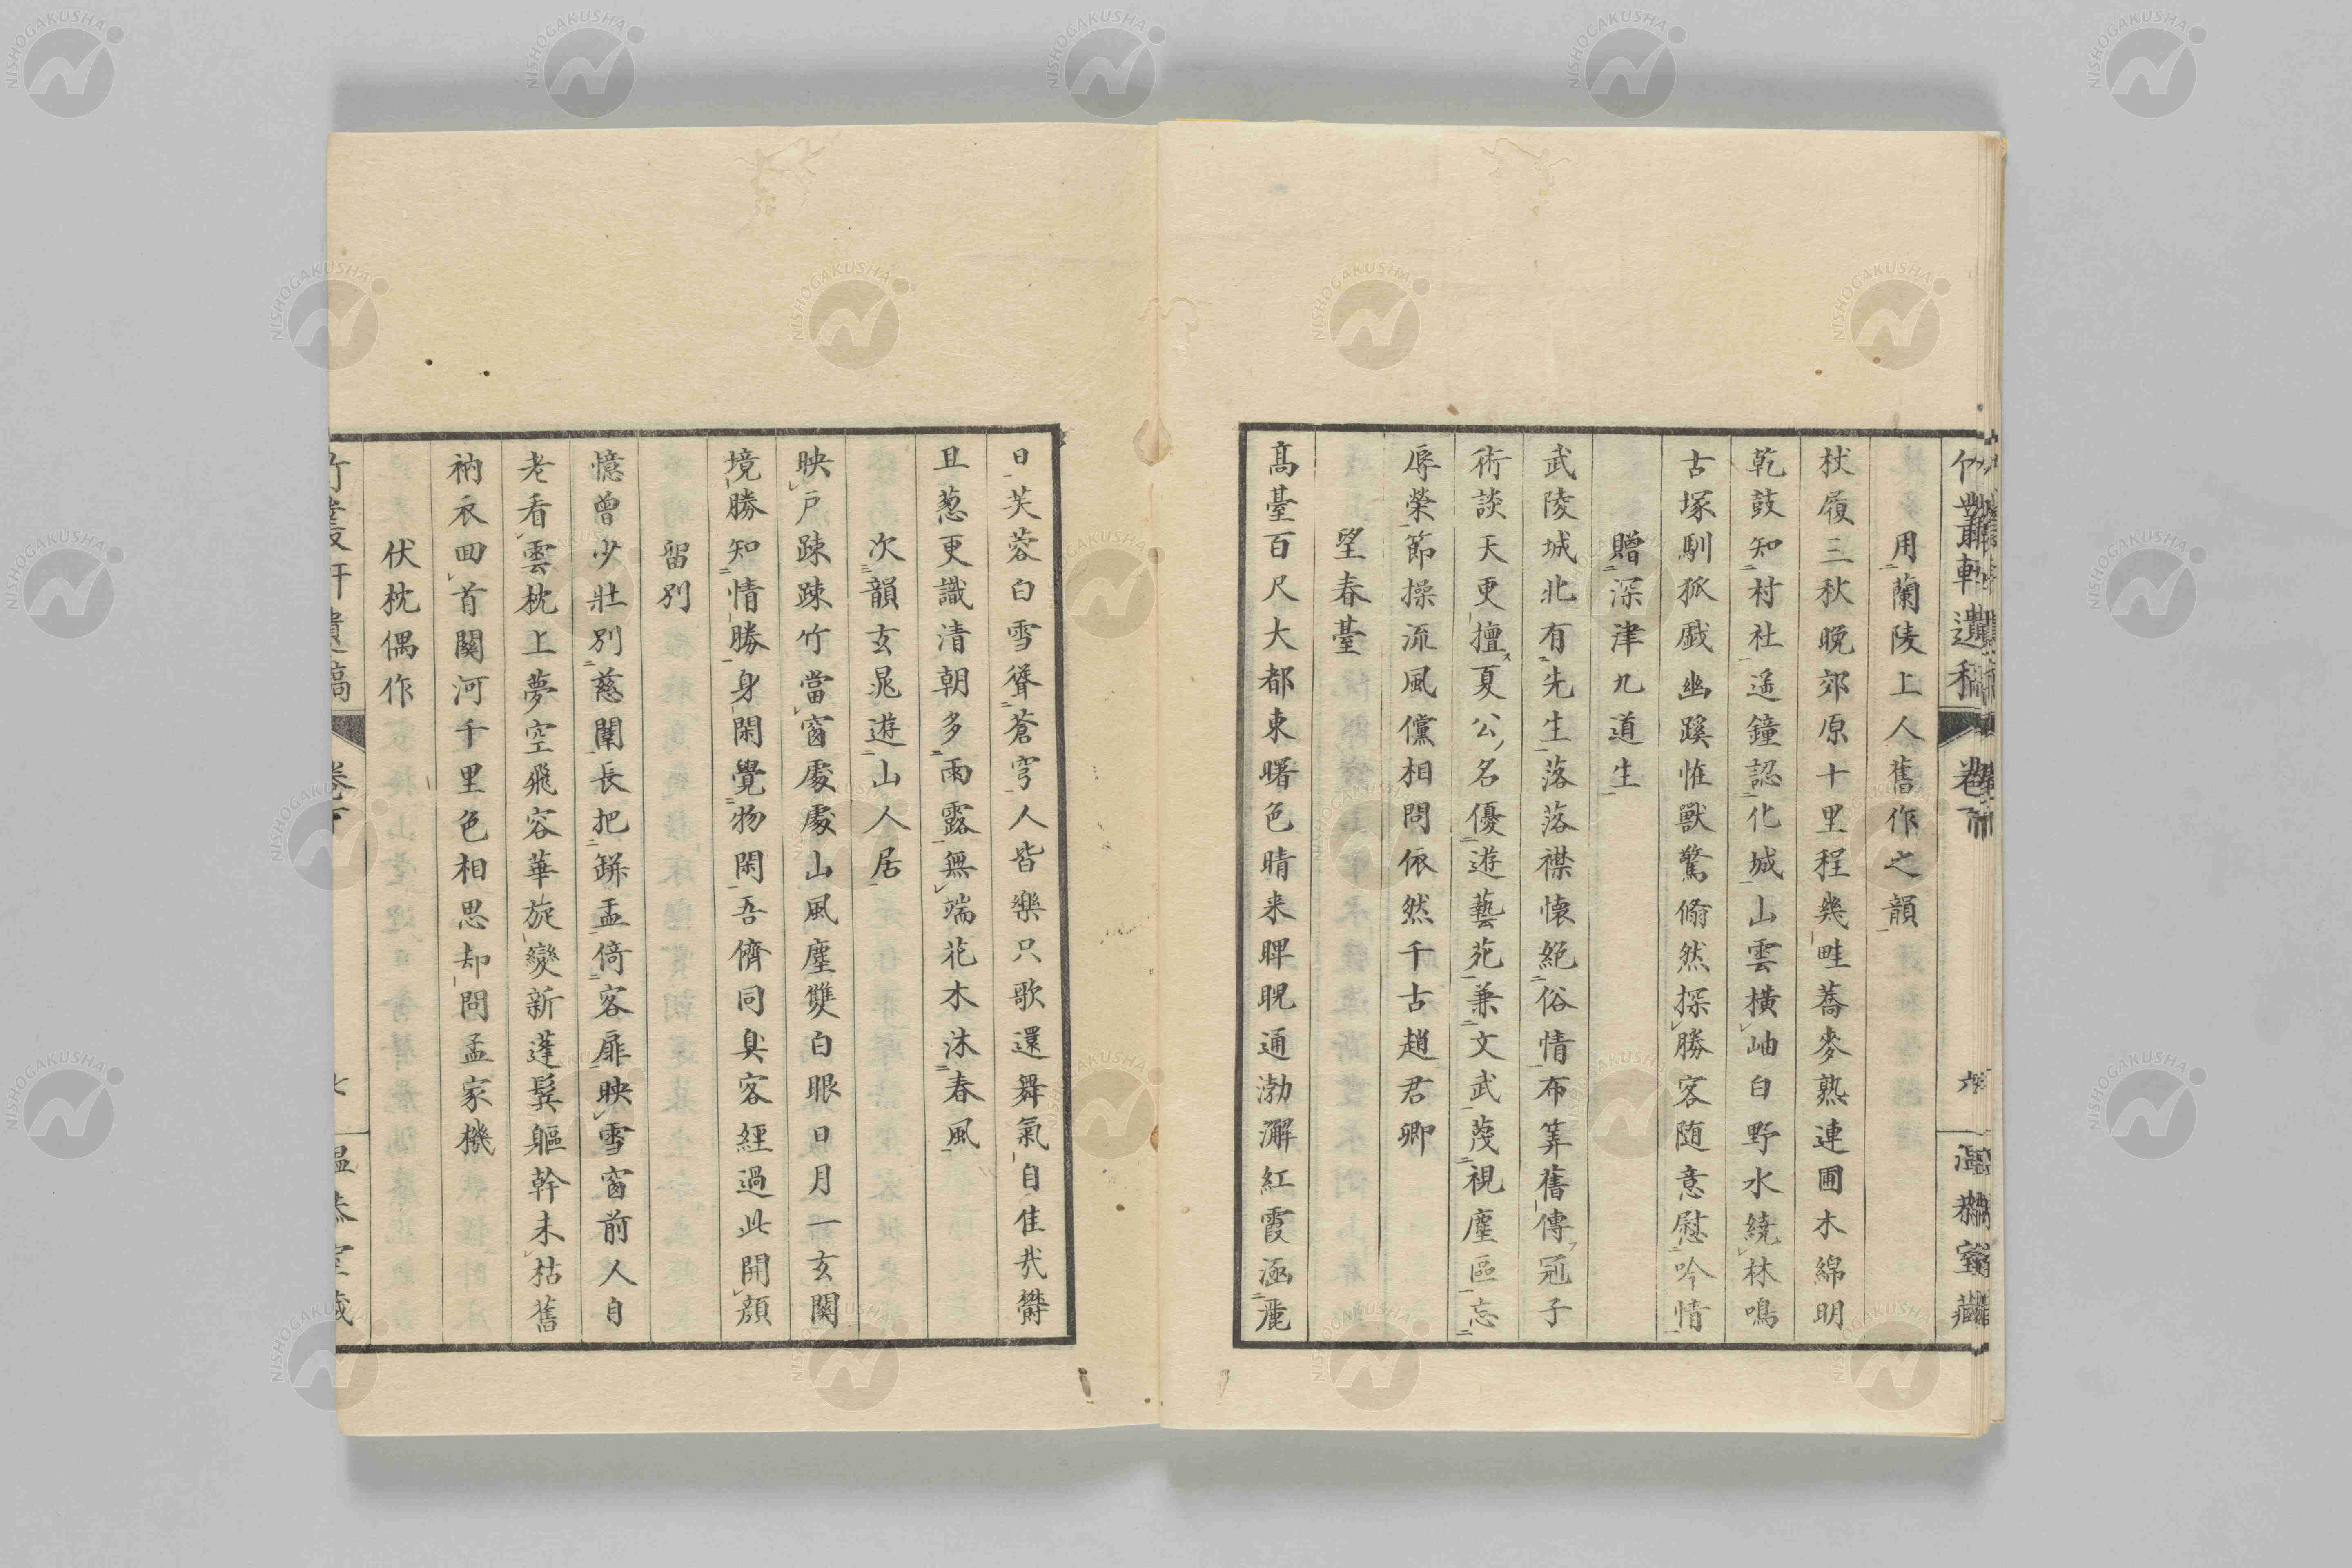 用蘭陵上人舊作之韻
杖履三秋晚郊原十里程幾畦蕎麥熟連圃木綿明
乾鼓知村社遙鐘認化城山雲橫岫白野水繞林鳴
古塚馴狐戲幽蹊惟獸驚翛然探勝客随意慰吟情
贈深津九道生
武陵城北有先生落落襟懷絕俗情布筭舊傳冠子
術談天更擅夏公名優遊藝苑兼文武蔑視塵區忘
辱榮節操流風儻相問依然千古趙君卿
望春臺
高臺百尺大都東曙色晴来睥睨通渤澥紅霞涵麗
日芙蓉白雪聳蒼穹人皆樂只歌還舞氣自佳哉鬱
且葱更識清朝多雨露無端花木沐春風
次韻玄晁遊山人居
映戶踈踈竹當窗處處山風塵雙白眼日月一玄關
境勝知情勝身閑覺物閑吾儕同臭客經過此開顔
留別
憶曾少壯別慈闈長把缾盂倚客扉映雪窗前人自
老看雲枕上夢空飛容華旋變新蓬鬢軀幹未枯舊
衲衣回首關河千里色相思却問孟家機
伏枕偶作